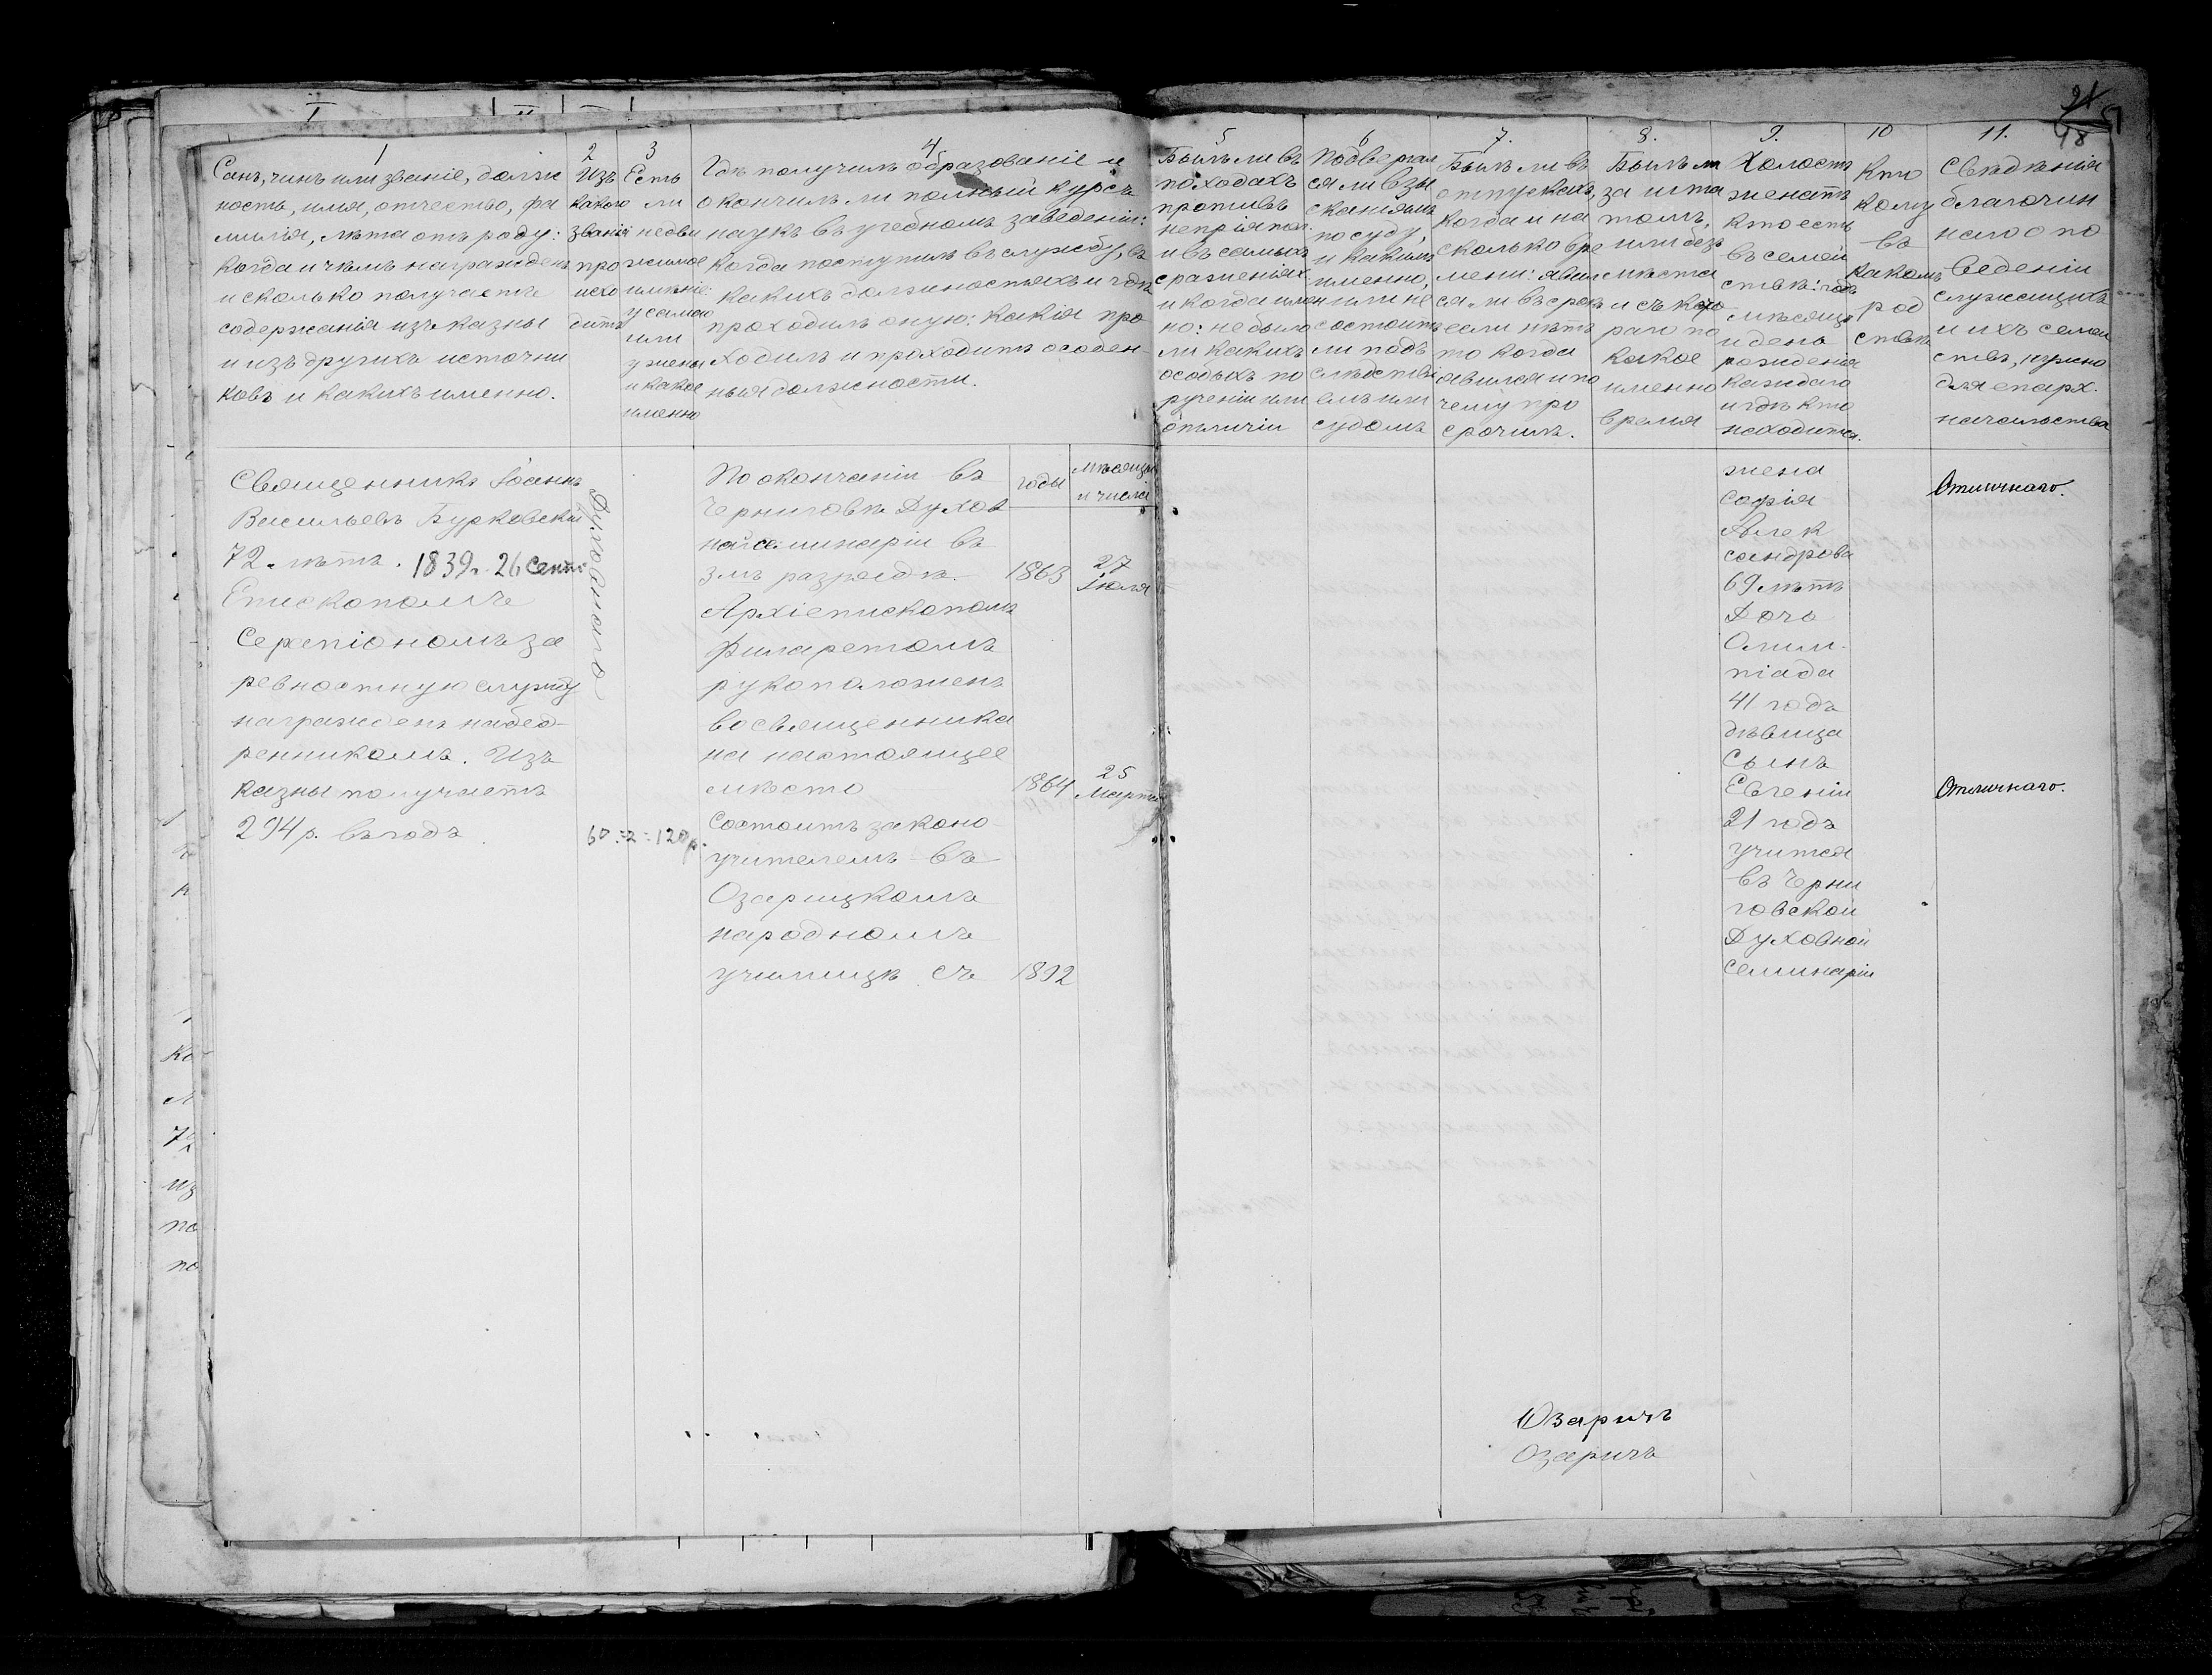 21
48
1
Санъ, чинъ или званіе, долж
ность, имя, отчество, фа
милія, лѣта отъ роду:
когда и чѣмъ награжденъ
и сколько получаетъ
содержанія изъ казны
и изъ другихъ источни
ковъ и какихъ именно.
2
Изъ
какого
званія
про
исхо
дитъ
3
Есть
ли
недви
жимое
имѣніе:
у самого
или
у жены
и какое
именно
4
Гдѣ получилъ образованіе и
окончилъ ли полный курсъ
наукъ въ учебномъ заведеніи:
когда поступилъ въ службу, въ
какихъ должностяхъ и гдѣ
проходилъ оную: какія про
ходилъ и проходитъ особен-
ныя должности.
5
Былъ ли въ
походахъ
противъ
непріятел.
и въ самыхъ
сраженіяхъ
и когда имен
но: не было
ли какихъ
особыхъ по
рученій или
отличій
6
Подвергал
ся ли взы
сканіямъ
по суду,
и какимъ
именно,
или не
состоитъ
ли подъ
слѣдстві
емъ или
судомъ
7.
Былъ ли въ
отпускахъ,
когда и на
сколько вре
мени: явил
ся ли въ срокъ
если нѣтъ
то когда
явился и по
чему про
срочилъ.
8.
Былъ ли
за шта
томъ,
или безъ
мѣста
и съ кото
раго по
какое
именно
время
9.
Холостъ
женатъ
кто есть
въ семей
ствѣ: годъ
мѣсяцъ
и день
рожденія
каждаго
и гдѣ кто
находится.
10
Кто
кому
въ
какомъ
род
ствѣ
11.
Свѣдѣнія
благочин
наго о по
веденіи
служащихъ
и ихъ семей
ствъ, нужно
для епарх.
начальства
Священникъ Іоаннъ
Васильевъ Бурковскій
72 лѣтъ. 1839 г. 26 Сент.
Епископомъ
Серапіономъ за
ревностную службу
награжденъ набед-
ренникомъ. Изъ
казны получаетъ
294 р. въ годъ
Духовнаго
60 . 2 = 120 р.
По окончаніи въ
Черниговск. Духов
ной семинаріи въ
3мъ разрядѣ.
Архіепископомъ
Филаретомъ
рукоположенъ
во священника
на настоящее
мѣсто
Состоитъ законо-
учителемъ въ
Озарицкомъ
народномъ
училищѣ съ
годы
1863
1864
1892
мѣсяцы
и числа
27
Іюля
25
Марта
жена
Софія
Алек
сандрова
69 лѣтъ
Дочь
Олим-
піада
41 годъ
дѣвица
Сынъ
Евгеній
21 годъ
учится
въ Черни
говской
Духовной
семинаріи
Отличнаго.
Отличнаго.
Озаричъ
Озаричъ